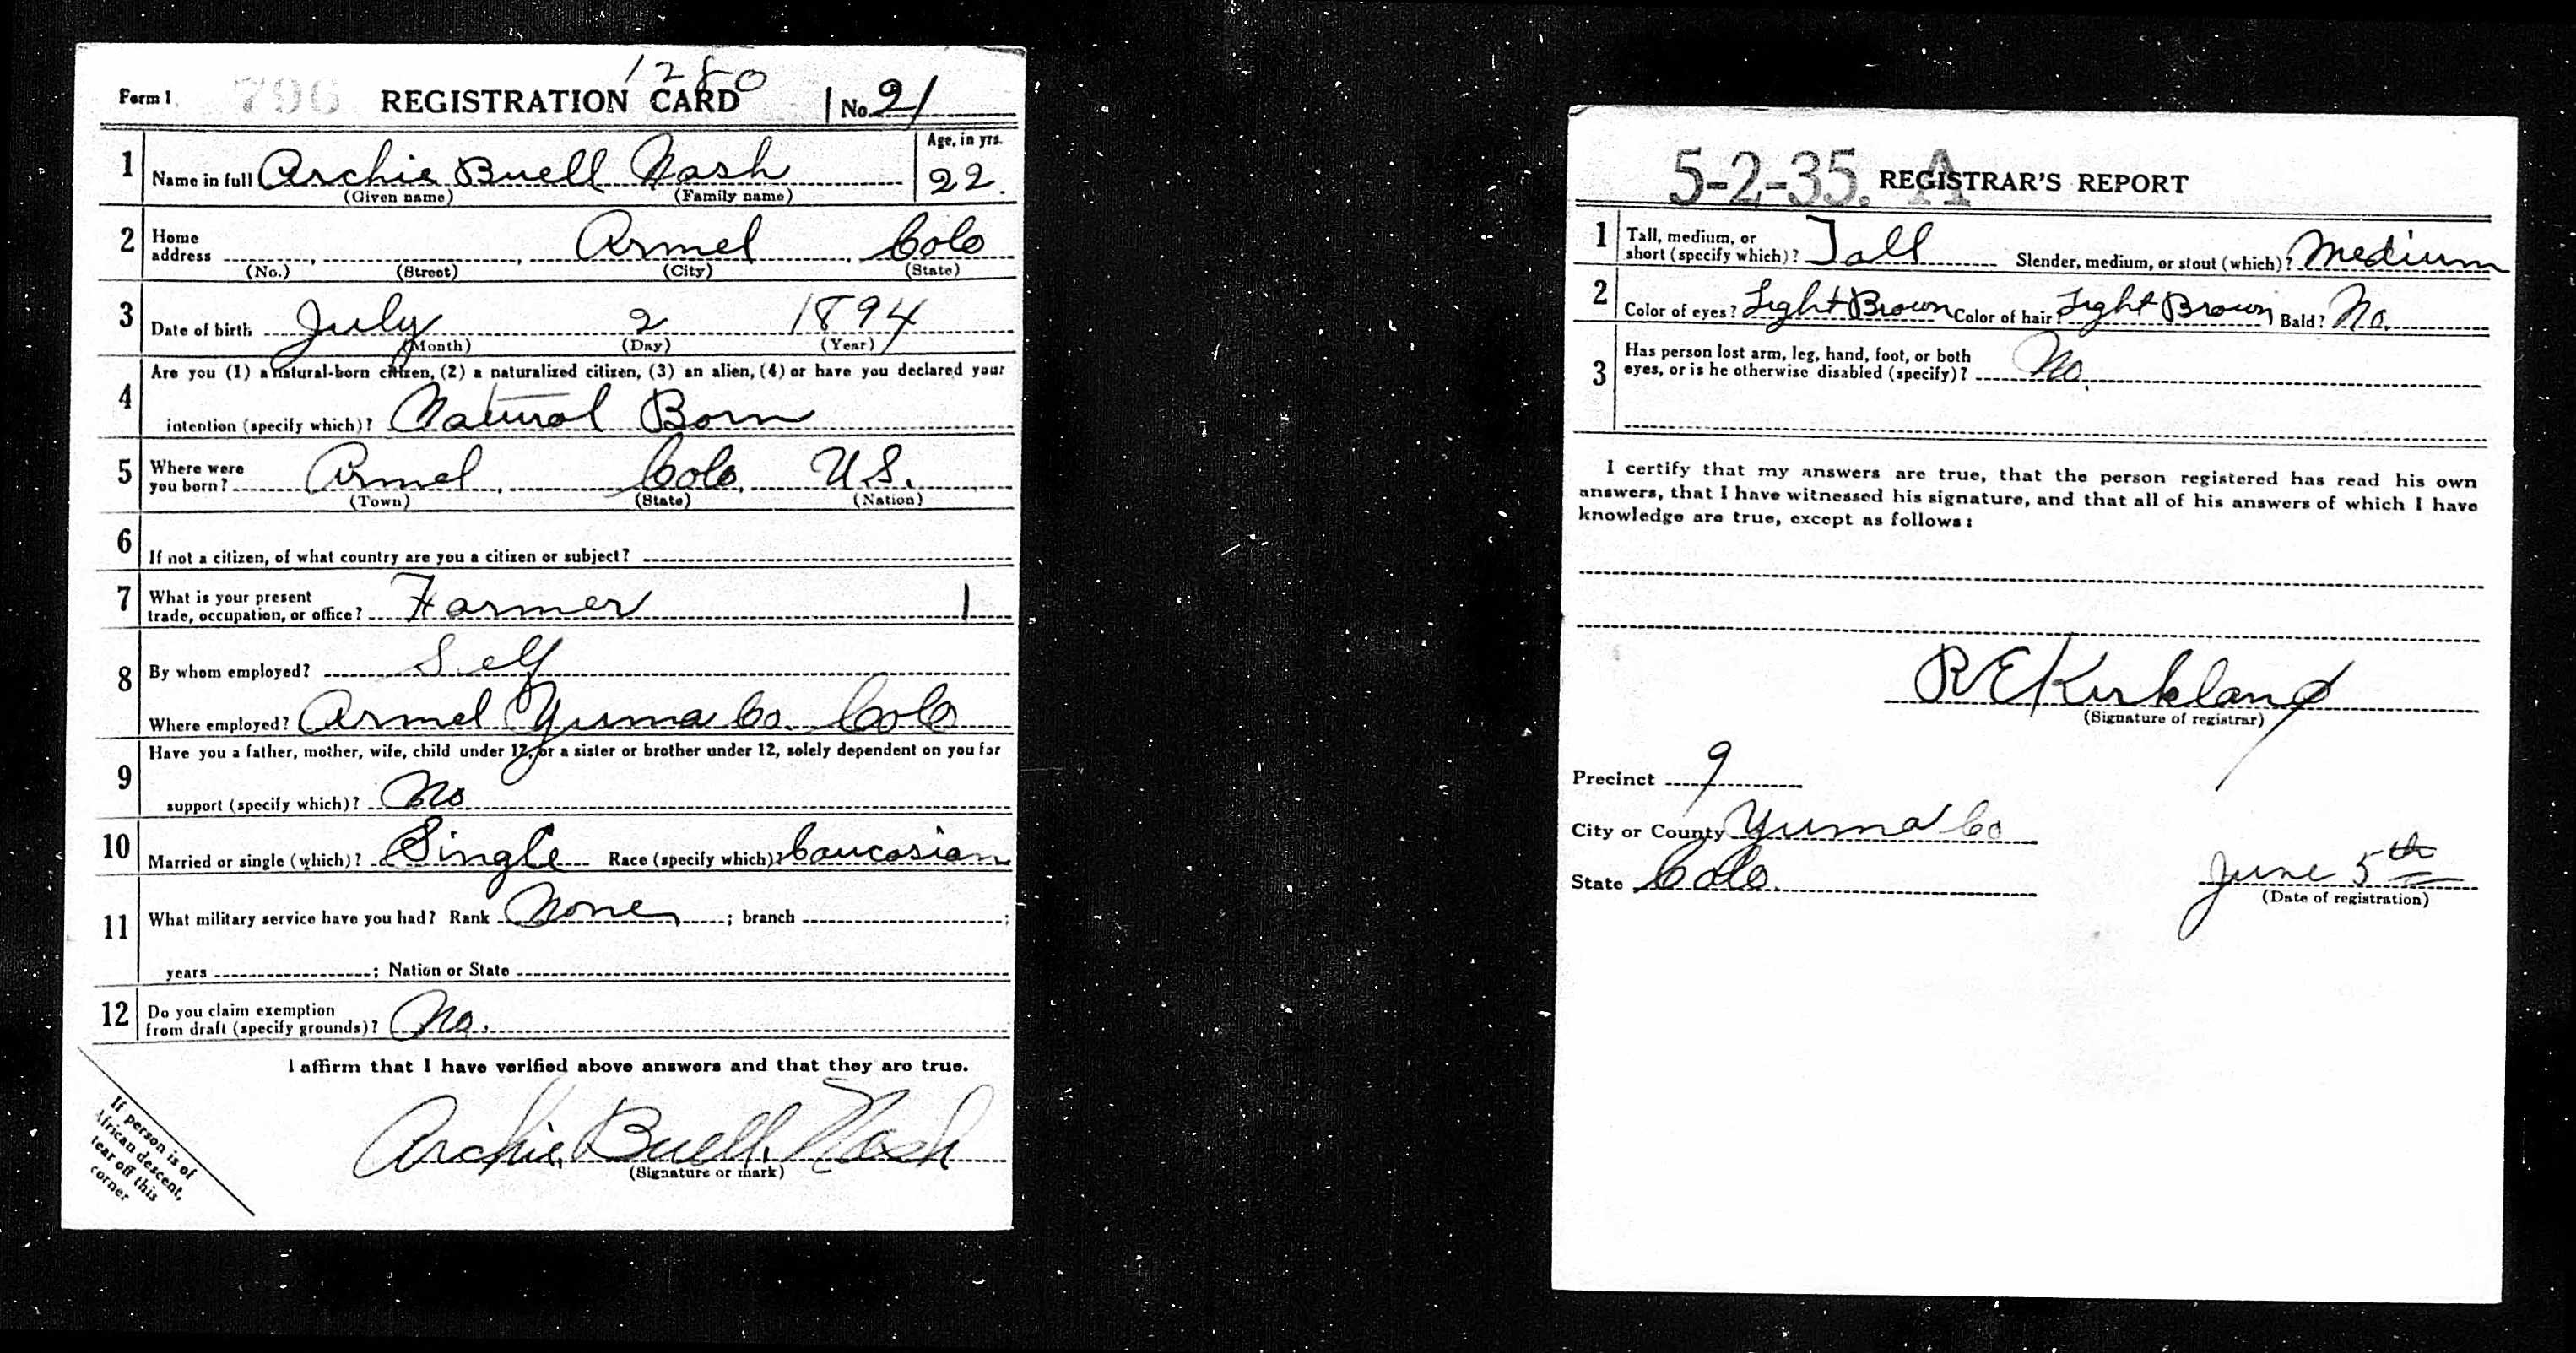 1280
Form 1 796 REGISTRATION CARD No. 21
1 Name in full Archie Buell Nash Age, in yrs. 22.
(Given name) (Family name)
2 Home address Armel Colo
(No.) (Street) (City) (State)
3 Date of birth July 2 1894
(Month) (Day) (Year)
4 Are you (1) a natural-born citizen, (2) a naturalized citizen, (3) an alien, (4) or have you declared your
intention (specify which)? Natural Born
5 Where were you born? Armel, Colo, U.S.
(Town) (State) (Nation)
6 If not a citizen, of what country are you a citizen or subject?
7 What is your present
trade, occupation, or office? Farmer 1
8 By whom employed? Self
Where employed? Armel Yuma Co. Colo
9 Have you a father, mother, wife, child under 12, or a sister or brother under 12, solely dependent on you for
support (specify which)? No
10 Married or single (which)? Single Race (specify which)? Caucasian
11 What military service have you had? Rank None ; branch ;
years ; Nation or State
12 Do you claim exemption
from draft (specify grounds)? No.
I affirm that I have verified above answers and that they are true.
Archie Buell Nash
(Signature or mark)
If person is of
African descent,
tear off this
corner
5-2-35. A REGISTRAR'S REPORT
1 Tall, medium, or
short (specify which)? Tall Slender, medium, or stout (which)? Medium
2 Color of eyes? Light Brown Color of hair? Light Brown Bald? No.
3 Has person lost arm, leg, hand, foot, or both
eyes, or is he otherwise disabled (specify)? No.
I certify that my answers are true, that the person registered has read his own
answers, that I have witnessed his signature, and that all of his answers of which I have
knowledge are true, except as follows:
R E Kirkland
(Signature of registrar)
Precinct 9
City or County Yuma Co
State Colo. June 5th
(Date of registration)